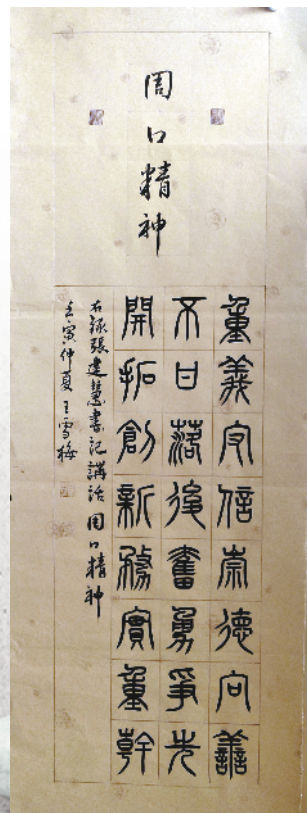 周口精神
重義守信崇德向善
不曰落後奮勇爭先
開拓創新務實重幹
右錄張建慧書記講話周口精神
壬寅仲夏王雪梅